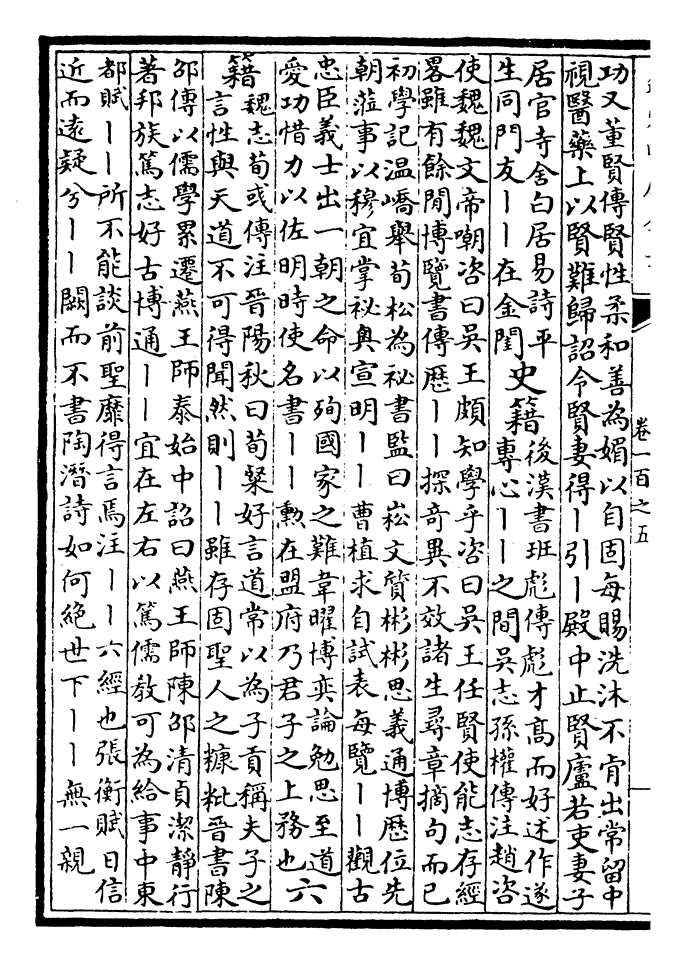 卷一百之五
功又董賢傳賢性柔和善為媚以自固每賜洗沐不肯出常留中
視醫藥上以賢難歸詔令賢妻得丨引丨殿中止賢廬若吏妻子
居官寺舍白居易詩平
生同門友丨丨在金閨
史籍
後漢書班彪傳彪才髙而好述作遂
專心丨丨之間吳志孫權傳注趙咨
使魏魏文帝嘲咨曰吳王頗知學乎咨曰吳王任賢使能志存經
畧雖有餘閒博覽書傳歷丨丨探奇異不效諸生尋章摘句而已
初學記温嶠舉荀松為祕書監曰崧文質彬彬思義通博歷位先
朝蒞事以穆宜掌祕奥宣明丨丨曹植求自試表每覽丨丨觀古
忠臣義士出一朝之命以殉國家之難韋曜博奕論勉思至道
愛功惜力以佐明時使名書丨丨勲在盟府乃君子之上務也
六
籍
魏志荀彧傳注晉陽秋曰荀粲好言道常以為子貢稱夫子之
言性與天道不可得聞然則丨丨雖存固聖人之糠粃晉書陳
邵傳以儒學累遷燕王師泰始中詔曰燕王師陳邵清貞潔靜行
著邦族篤志好古博通丨丨宜在左右以篤儒教可為給事中東
都賦丨丨所不能談前聖靡得言焉注丨丨六經也張衡賦曰信
近而遠疑兮丨丨闕而不書陶潛詩如何絶世下丨丨無一親